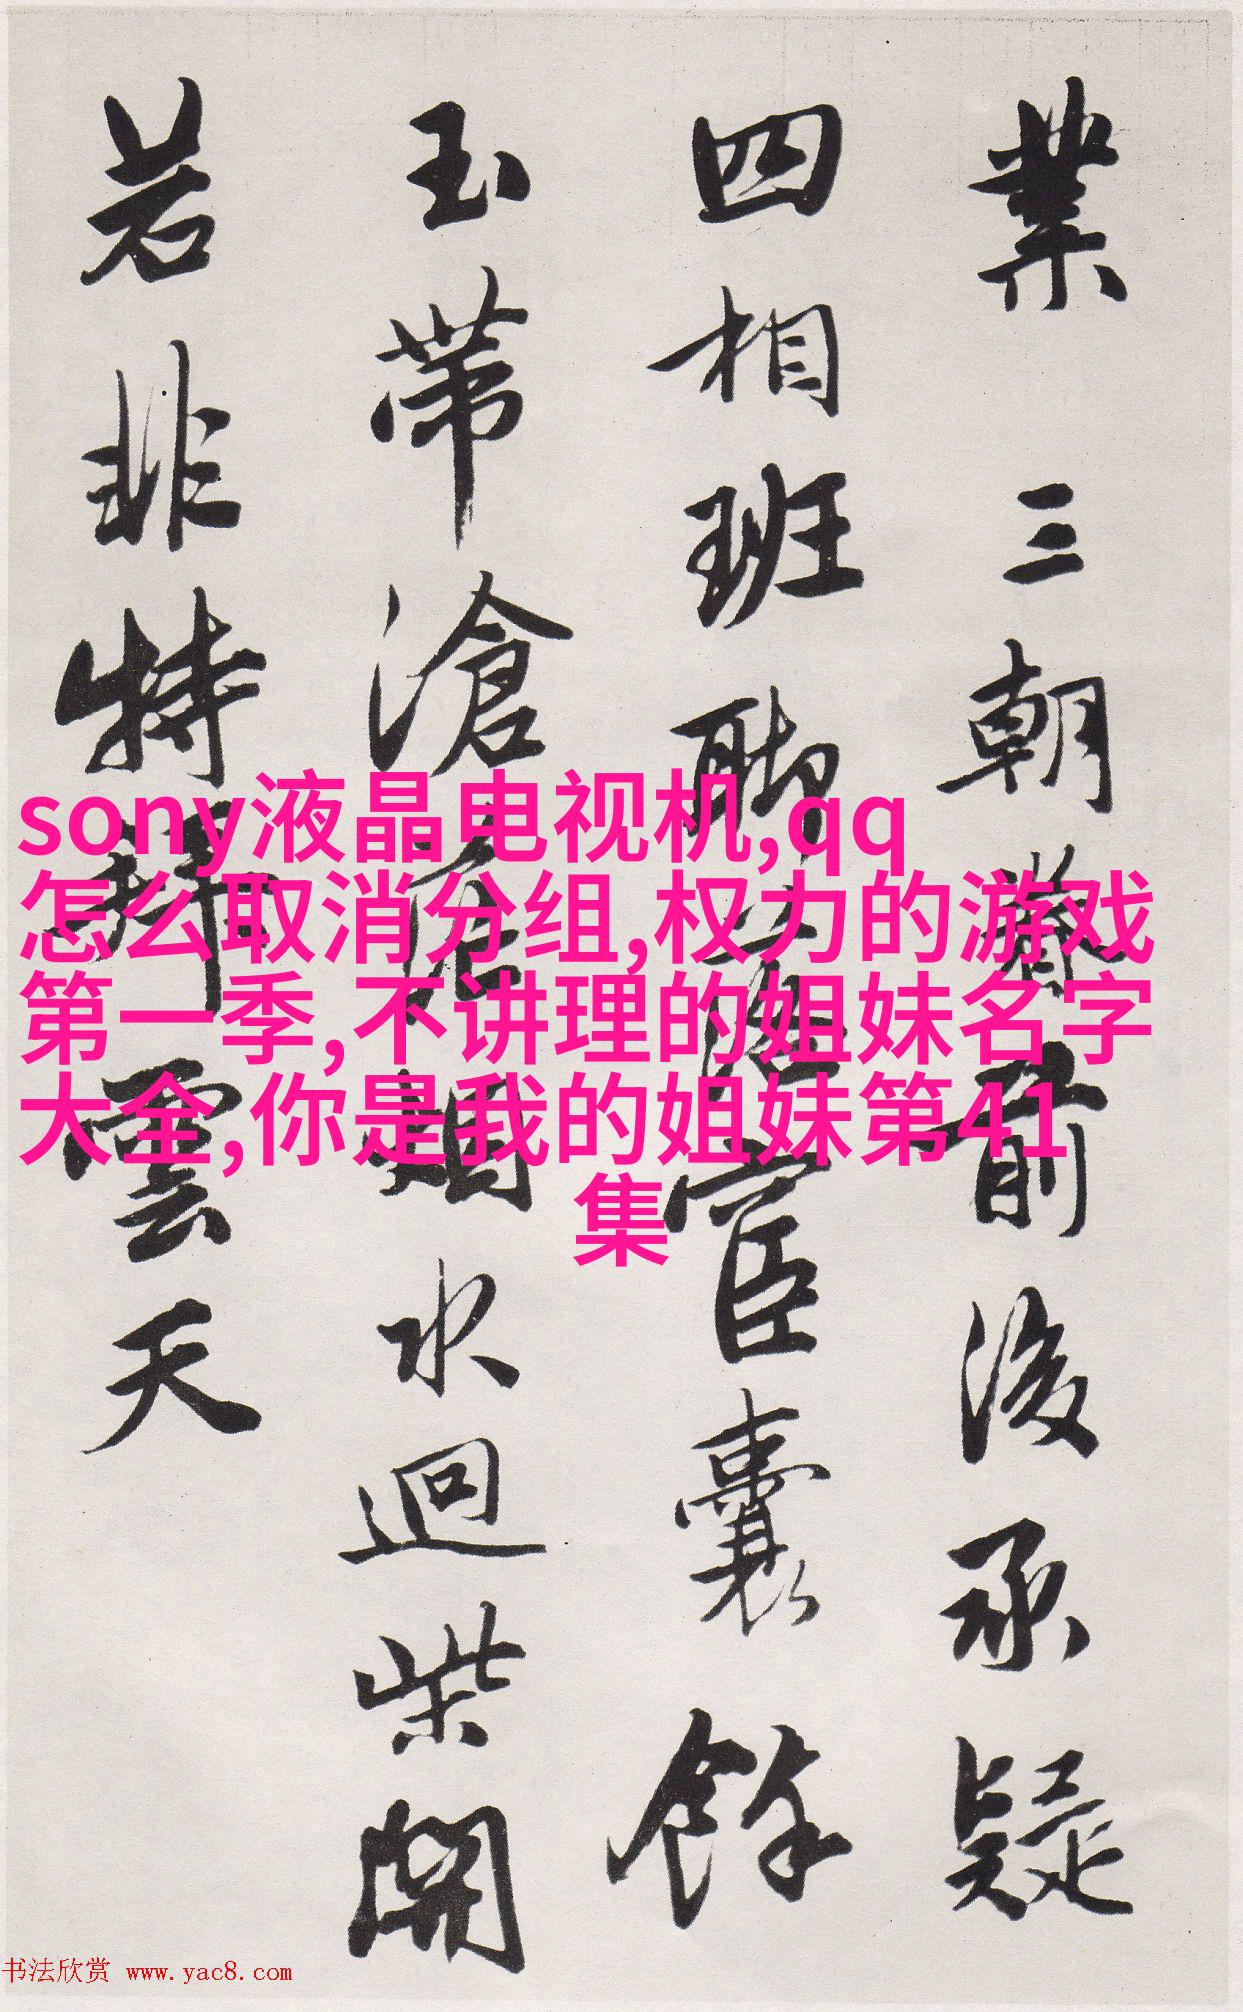 業 三朝前後承疑
四相班聊宦囊餘
玉帶滄烟水迥柴開
若非特雲天
sony液晶电视机,qq
怎么取消分组,权力的游戏
第一季,不讲理的姐妹名字
大全,你是我的姐妹第41
集
书法欣赏 www.yac8.com